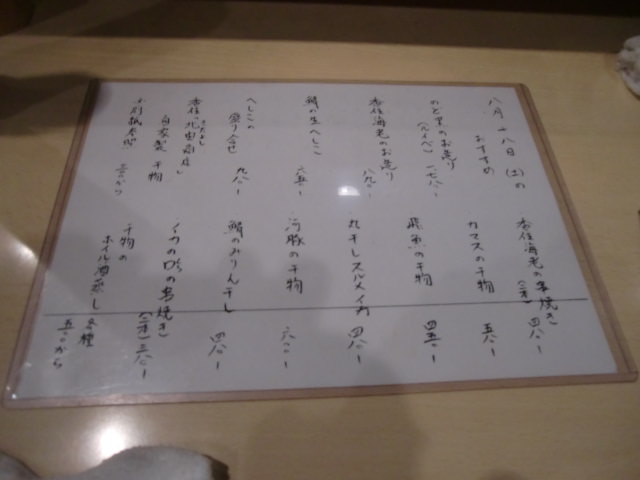 八月十八日(土)の
おすすめ
のど黒のお造り
(ルイベ) 一、七八〇ー
香住海老のお造り
八九〇ー
鯖の生へしこ
六五〇ー
へしこの
盛り合せ
九八〇ー
香住「北由商店」
きたよし
自家製 干物
三〇〇から
香住海老の串焼き
(二本) 四八〇ー
カマスの干物
五八〇ー
飛魚の干物
四五〇ー
丸干しスルメイカ
四八〇ー
河豚の干物
六八〇ー
鯖のみりん干し
四八〇ー
イカの口の串焼き
(二本) 三八〇ー
干物の
ホイル酒蒸し
各種
五〇〇から